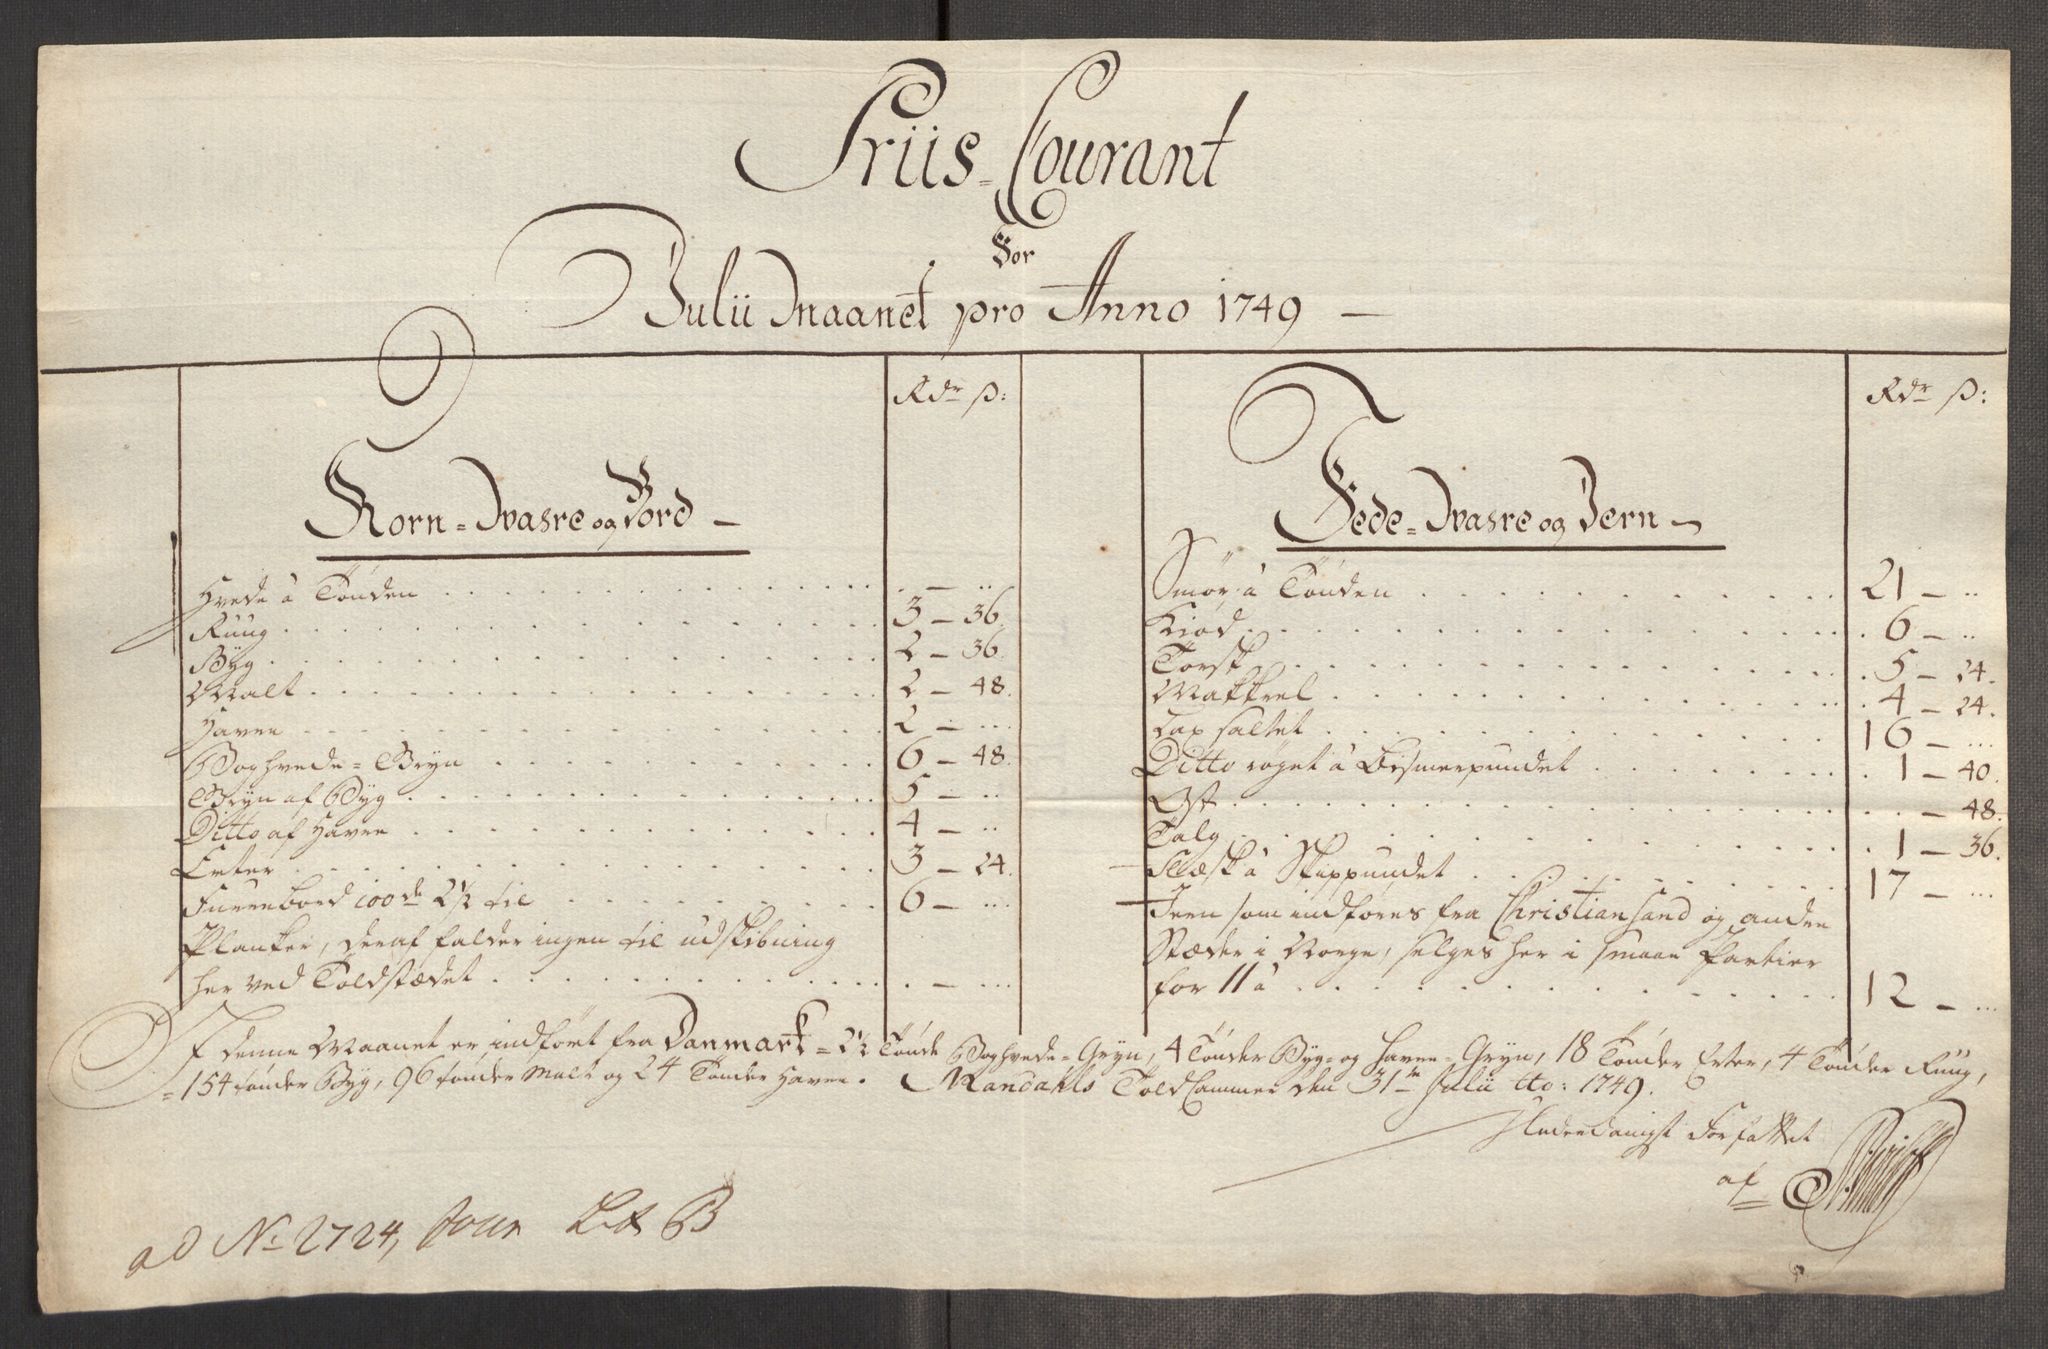 Priis-Courant
For
Julii Maanet pro Anno 1749 —
Rdr ß:
Korn-Waare og Bord —
Hvede à Tönden . — ..
Ruug 3 — 36.
Byg 2 — 36.
Malt 2 — 48.
Havre 2 — ...
Boghvede-Gryn 6 — 48.
Gryn af Byg 5 — ..
Ditto af Havre 4 — ..
Erter 3 — 24.
Furrebord 100de 2½ til 6 — ...
Planker, deraf falder ingen til udskibning
her ved Toldstædet . — ...
Rdr ß:
Fede-Waare og Jern —
Smör à Tönden 21 — ..
Kiöd 6 — ..
Torsk 5 — 24.
Makkrel 4 — 24.
Lax saltet 16 — ...
Ditto röget à Bismerpundet 1 — 40.
Ost . — 48.
Talg 1 — 36.
Flæsk à Skippundet 17 — ...
Jern som indföres fra Christiansand og andre
Stæder i Norge, selges her i smaae Partier
for 11 à 12 — ...
I denne Maanet er indfört fra Danmark = 2½ Tönde Boghvede-Gryn, 4 Tönder Byg- og Havre-Gryn, 18 Tönder Erter, 4 Tönder Ruug,
= 154 tönder Byg, 96 tönder Malt og 24 Tönder Havre. Mandahls Told Cammer den 31te Julii Ao: 1749.
Underdanigst Forfattet
af
ad No 2724, Jour Litr B